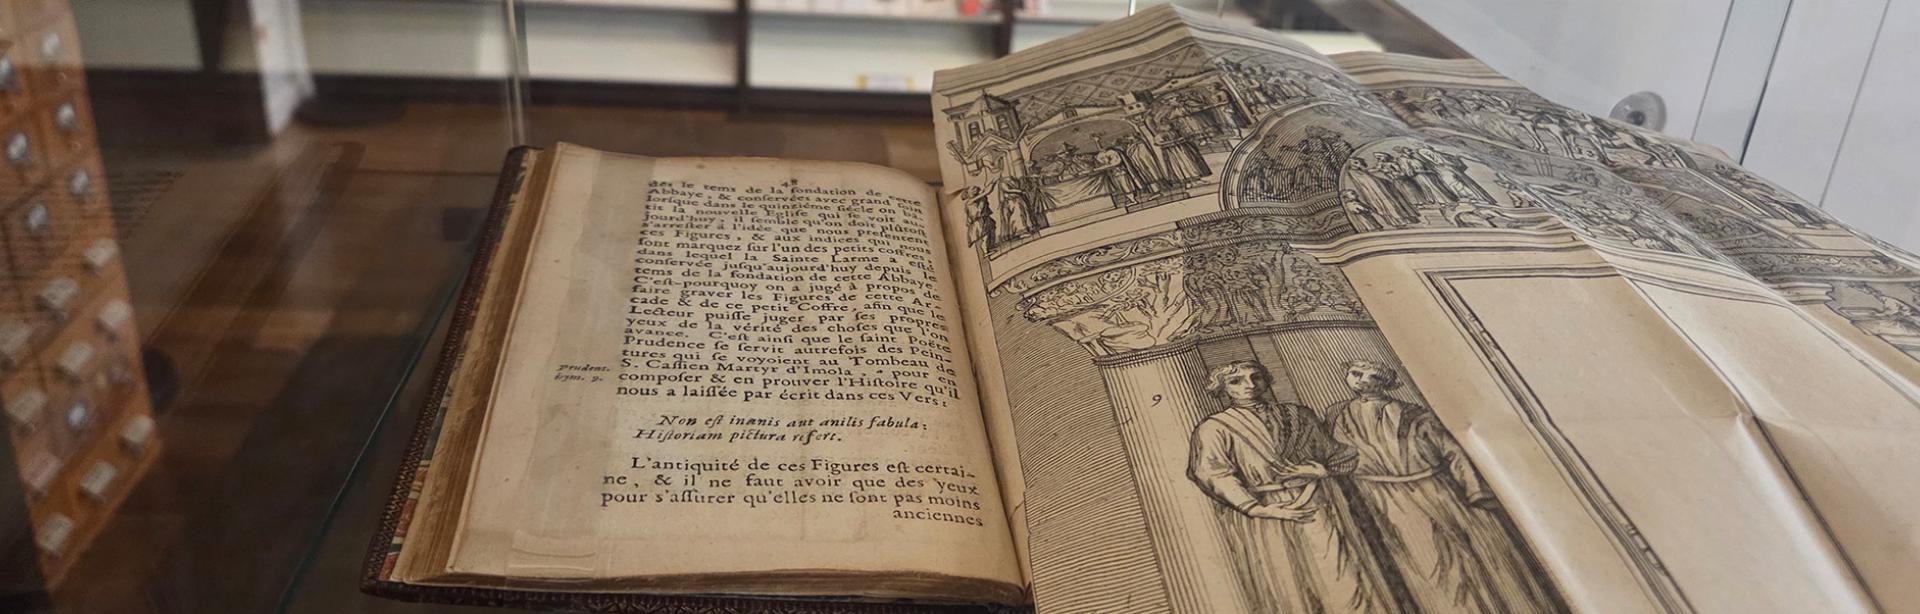 48
dés le tems de la fondation de cette
Abbaye, & conservées avec grand soin
lorsque dans le quinziéme siécle on bâ-
tit la nouvelle Eglise qui se voit au-
jourd'huy, il semble qu'on doit plustôt
s'arrester à l'idée que nous presentent
ces Figures, & aux indices qui nous
sont marquez sur l'un des petits coffres,
dans lequel la Sainte Larme a esté
conservée jusqu'aujourd'huy depuis le
tems de la fondation de cette Abbaye.
C'est-pourquoy on a jugé à propos de
faire graver les Figures de cette Ar-
cade & de ce petit Coffre, afin que le
Lecteur puisse juger par ses propres
yeux de la vérité des choses que l'on
avance. C'est ainsi que le saint Poëte
Prudence se servit autrefois des Pein-
tures qui se voyoient au Tombeau de
S. Cassien Martyr d'Imola, pour en
composer & en prouver l'Histoire qu'il
nous a laissée par écrit dans ces Vers:
Prudent.
hym. 9.
Non est inanis aut anilis fabula:
Historiam pictura refert.
L'antiquité de ces Figures est certai-
ne, & il ne faut avoir que des yeux
pour s'assurer qu'elles ne sont pas moins
anciennes
9